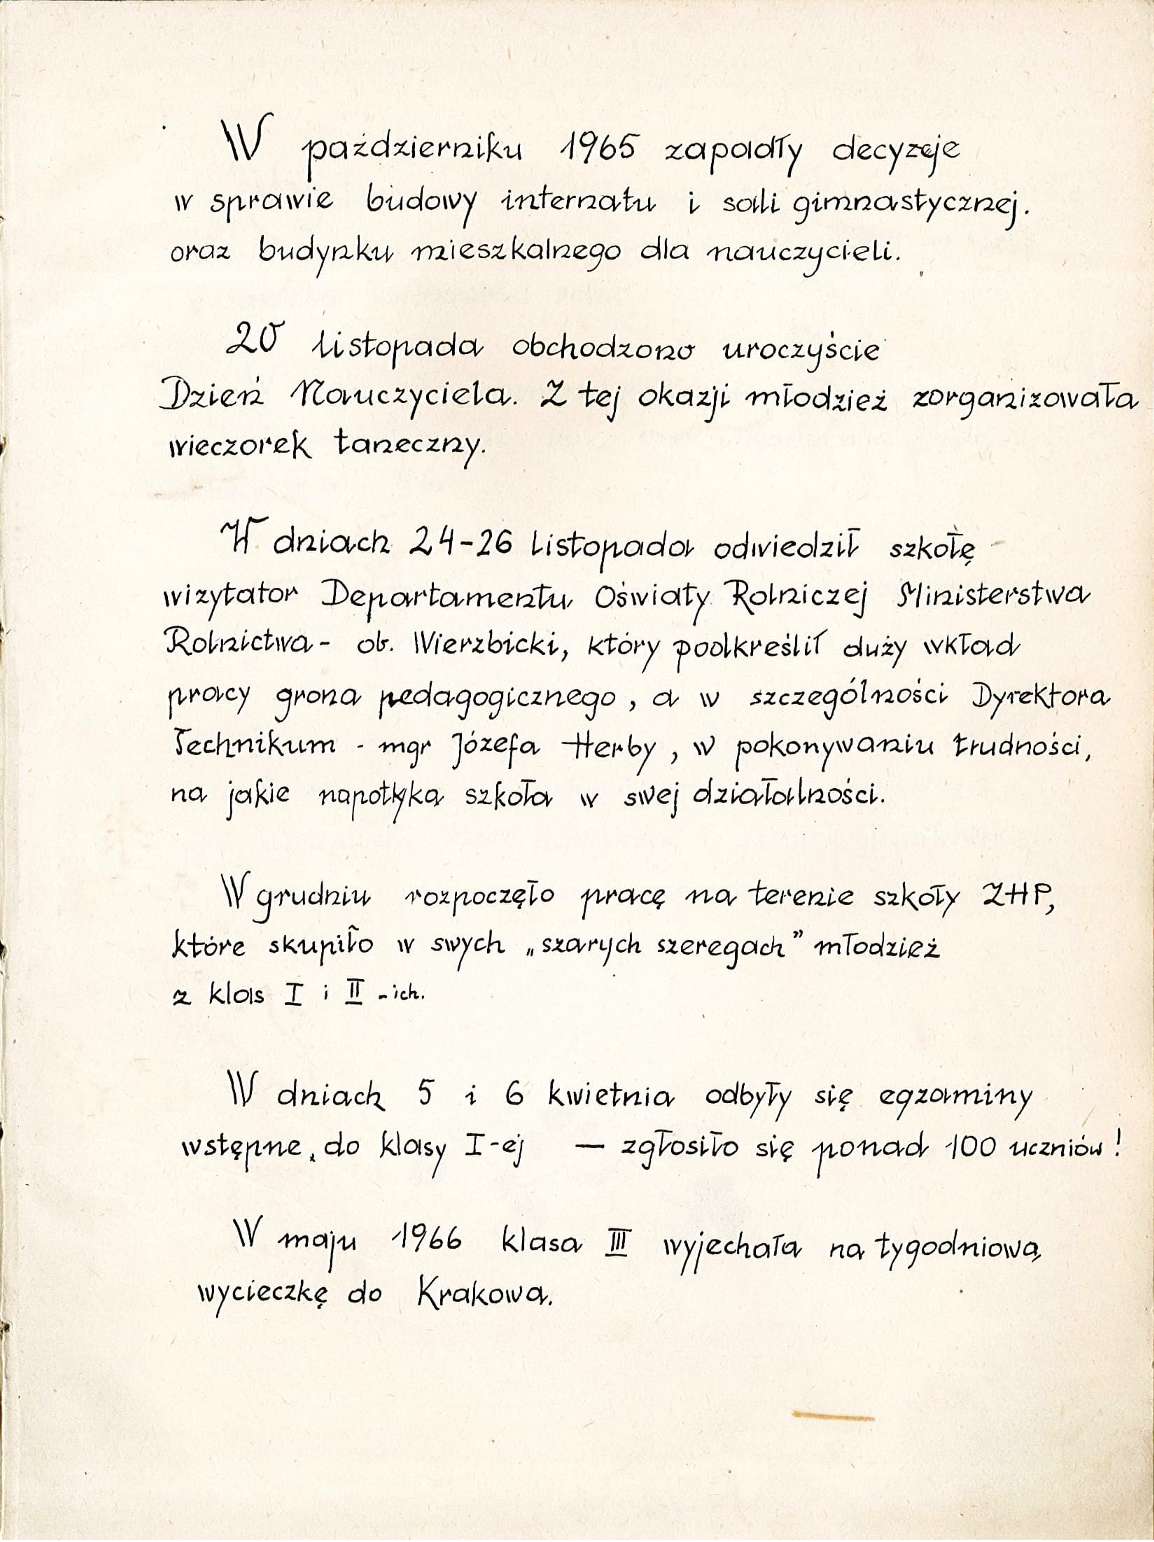 W październiku 1965 zapadły decyzje
w sprawie budowy internatu i sali gimnastycznej.
oraz budynku mieszkalnego dla nauczycieli.
20 listopada obchodzono uroczyście
Dzień Nauczyciela. Z tej okazji młodzież zorganizowała
wieczorek taneczny.
W dniach 24-26 listopada odwiedził szkołę
wizytator Departamentu Oświaty Rolniczej Ministerstwa
Rolnictwa - ob. Wierzbicki, który podkreślił duży wkład
pracy grona pedagogicznego, a w szczególności Dyrektora
Technikum - mgr Józefa Herby, w pokonywaniu trudności,
na jakie napotyka szkoła w swej działalności.
W grudniu rozpoczęło pracę na terenie szkoły ZHP,
które skupiło w swych „szarych szeregach” młodzież
z klas I i II -ich.
W dniach 5 i 6 kwietnia odbyły się egzaminy
wstępne do klasy I-ej — zgłosiło się ponad 100 uczniów!
W maju 1966 klasa III wyjechała na tygodniową
wycieczkę do Krakowa.